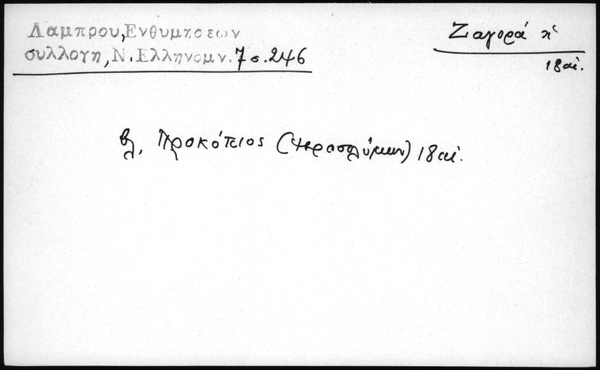 Λαμπρου,Ενθυμησεων
συλλογη,Ν.Ελληνομν.7 σ.246
Ζαγορά κ'
18 αἰ.
βλ. Προκόπιος (Ἱεροσολύμων) 18 αἰ.